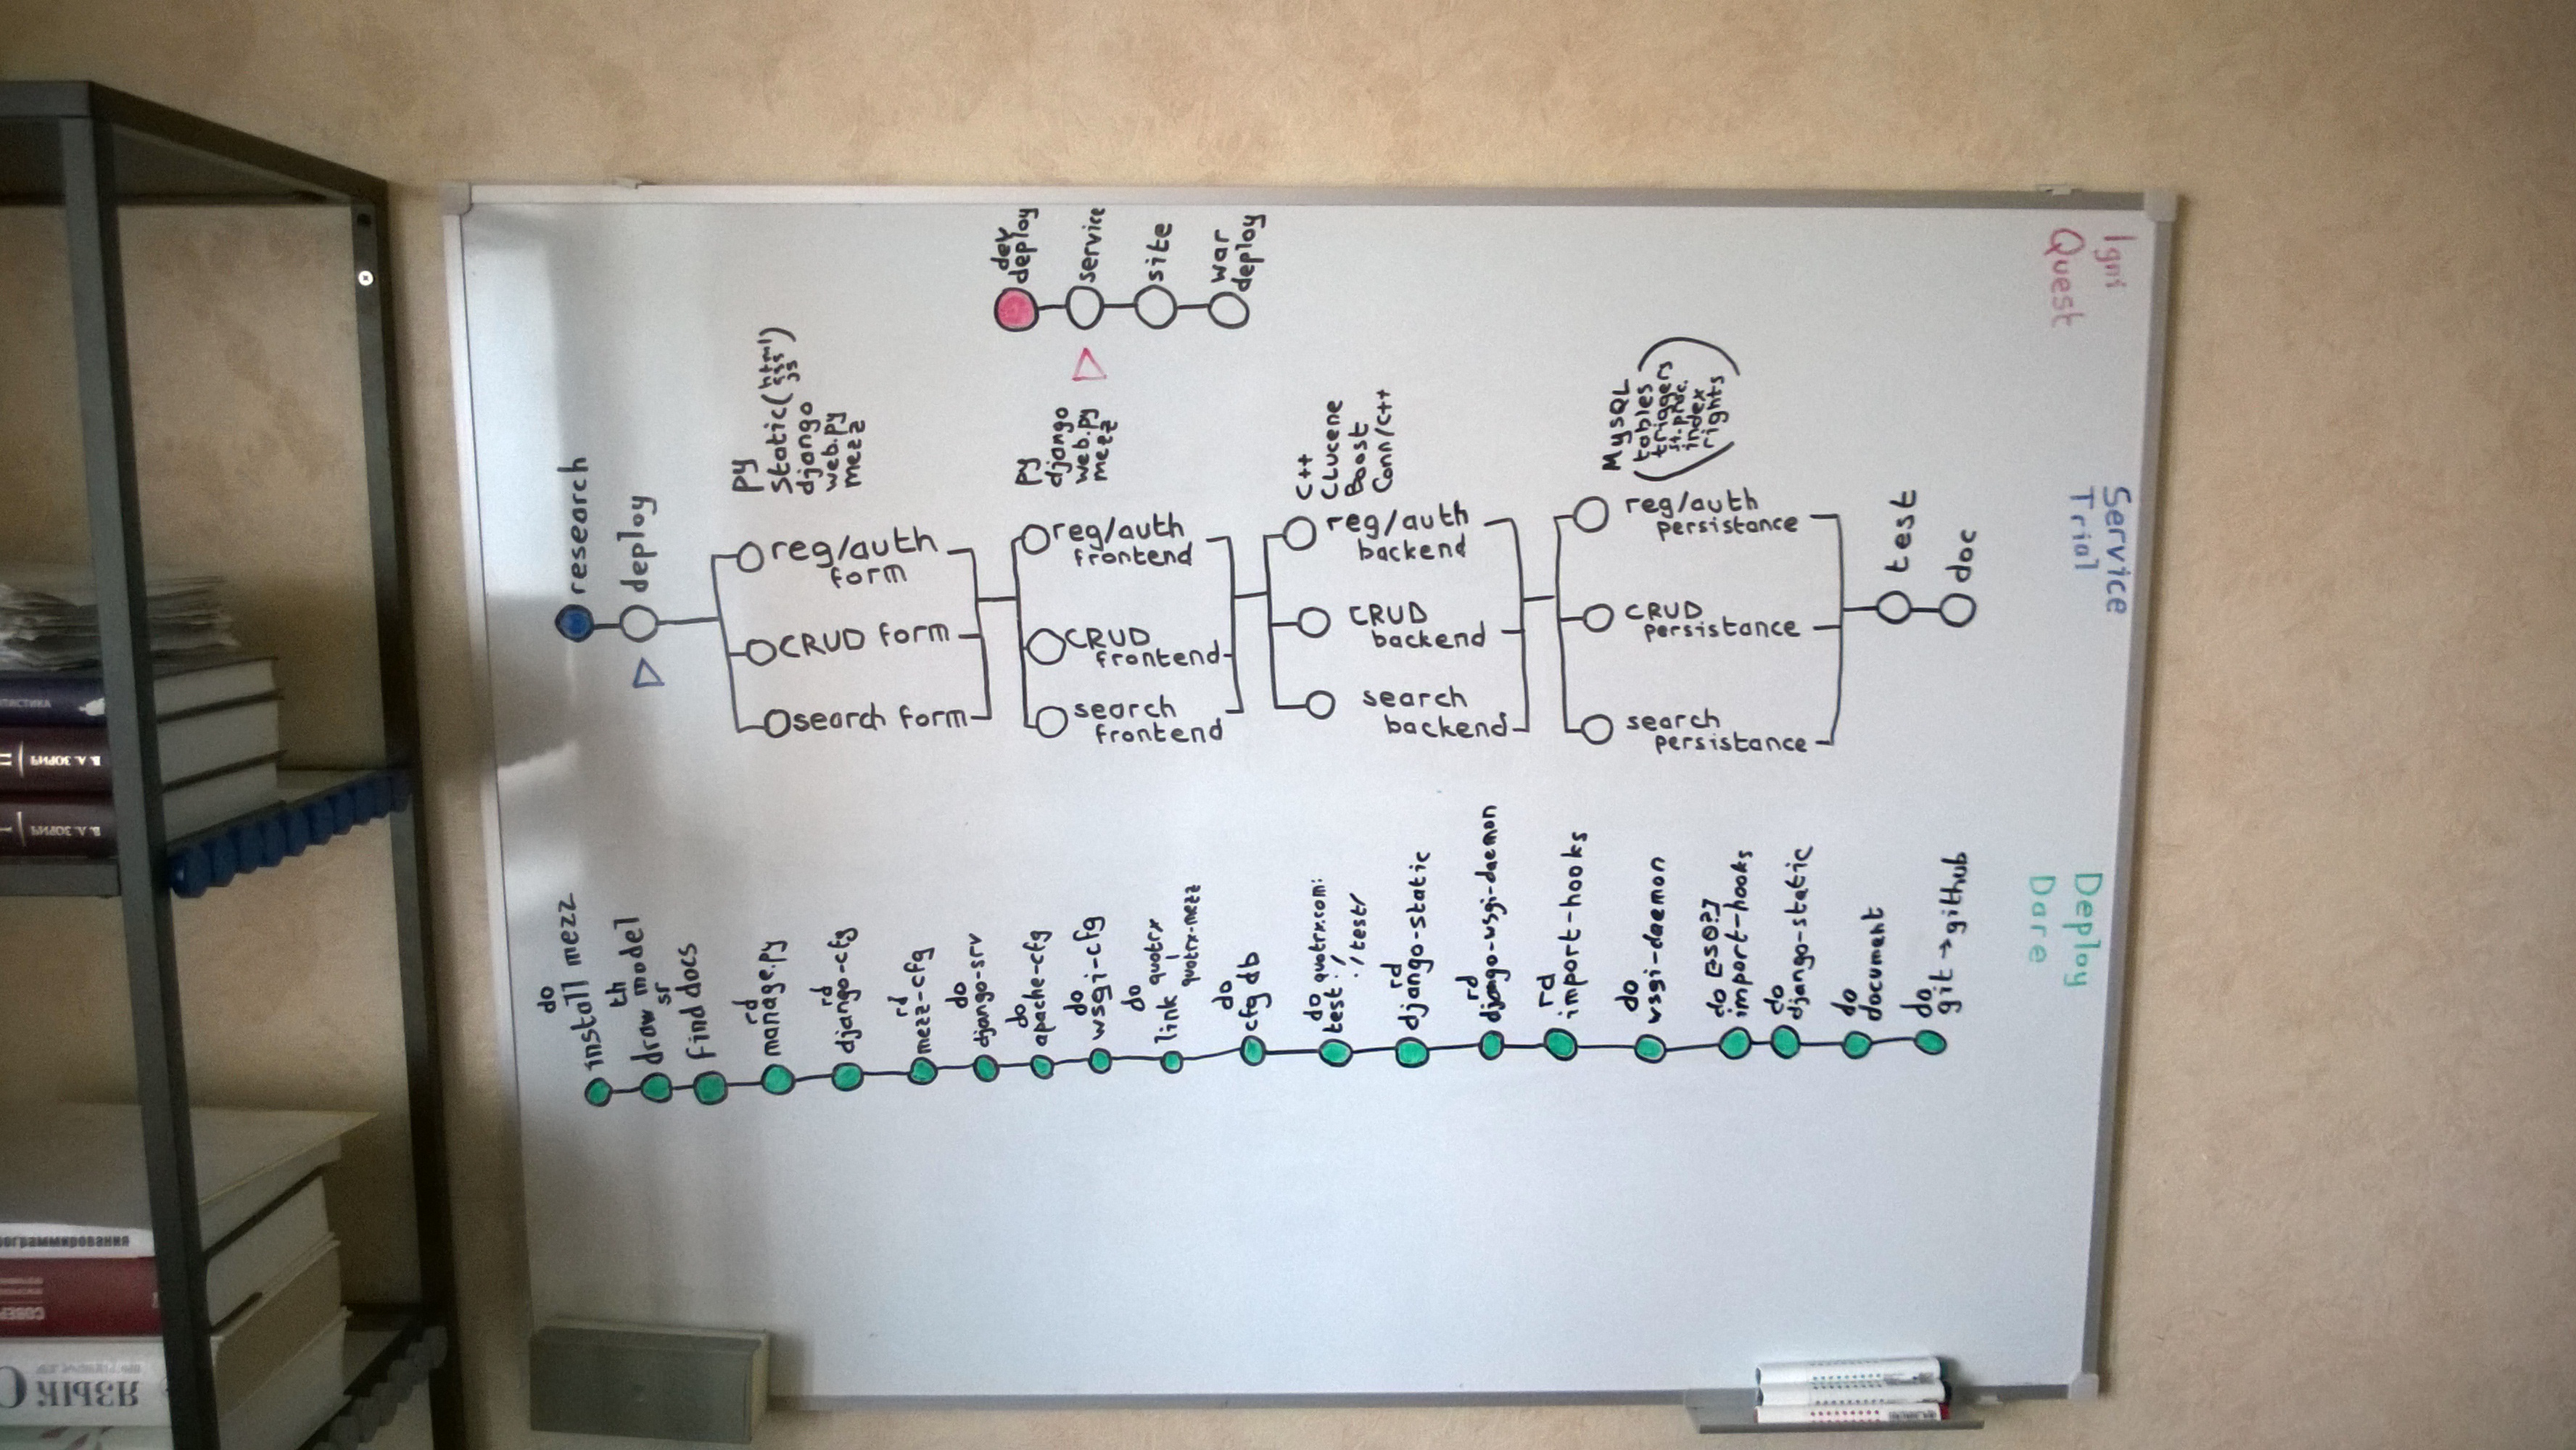 Igni
Quest
dev
deploy
service
site
war
deploy
Service
Trial
research
deploy
py
static(html
css
js)
django
web.py
mezz
reg/auth
form
CRUD form
search form
py
django
web.py
mezz
reg/auth
frontend
CRUD
frontend
search
frontend
C++
CLucene
Boost
Conn/C++
reg/auth
backend
CRUD
backend
search
backend
MySQL
tables
triggers
st.proc.
index
rights
reg/auth
persistance
CRUD
persistance
search
persistance
test
doc
Deploy
Dare
do
install mezz
th
draw model
sr
find docs
rd
manage.py
rd
django-cfg
rd
mezz-cfg
do
django-srv
do
apache-cfg
do
wsgi-cfg
do
link quotrx
quotrx-mezz
do
cfg db
do
test quotrx.com:
:/
:/test/
rd
django-static
rd
django-wsgi-daemon
rd
import-hooks
do
wsgi-daemon
do
import-hooks
do
django-static
do
document
do
git→github
В. А. ЗОРИЧ
II
В. А. ЗОРИЧ
I
ЯЗЫК